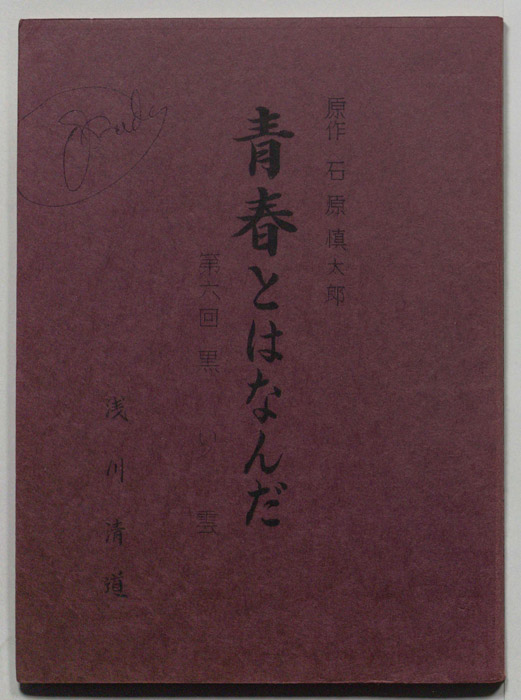 原作 石原慎太郎
青春とはなんだ
第六回 黒い雲
浅川清道